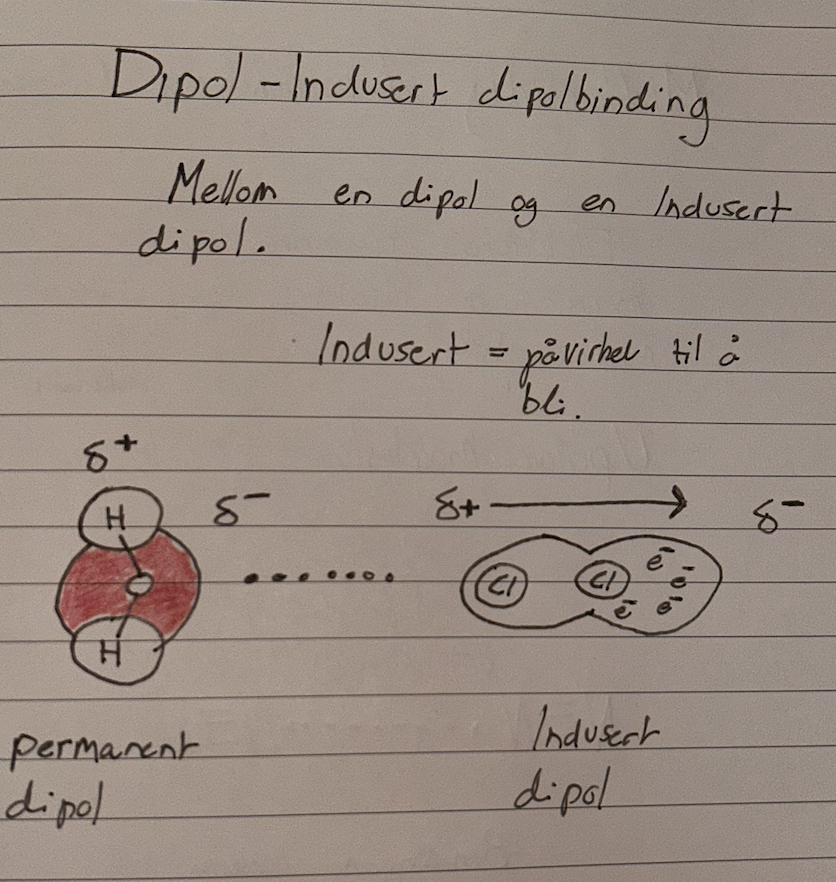 Dipol - Indusert dipolbinding
Mellom en dipol og en Indusert
dipol.
Indusert = påvirket til å
bli.
δ+
δ- δ+ → δ-
H
O Cl Cl e- e- e- e-
H
permanent Indusert
dipol dipol